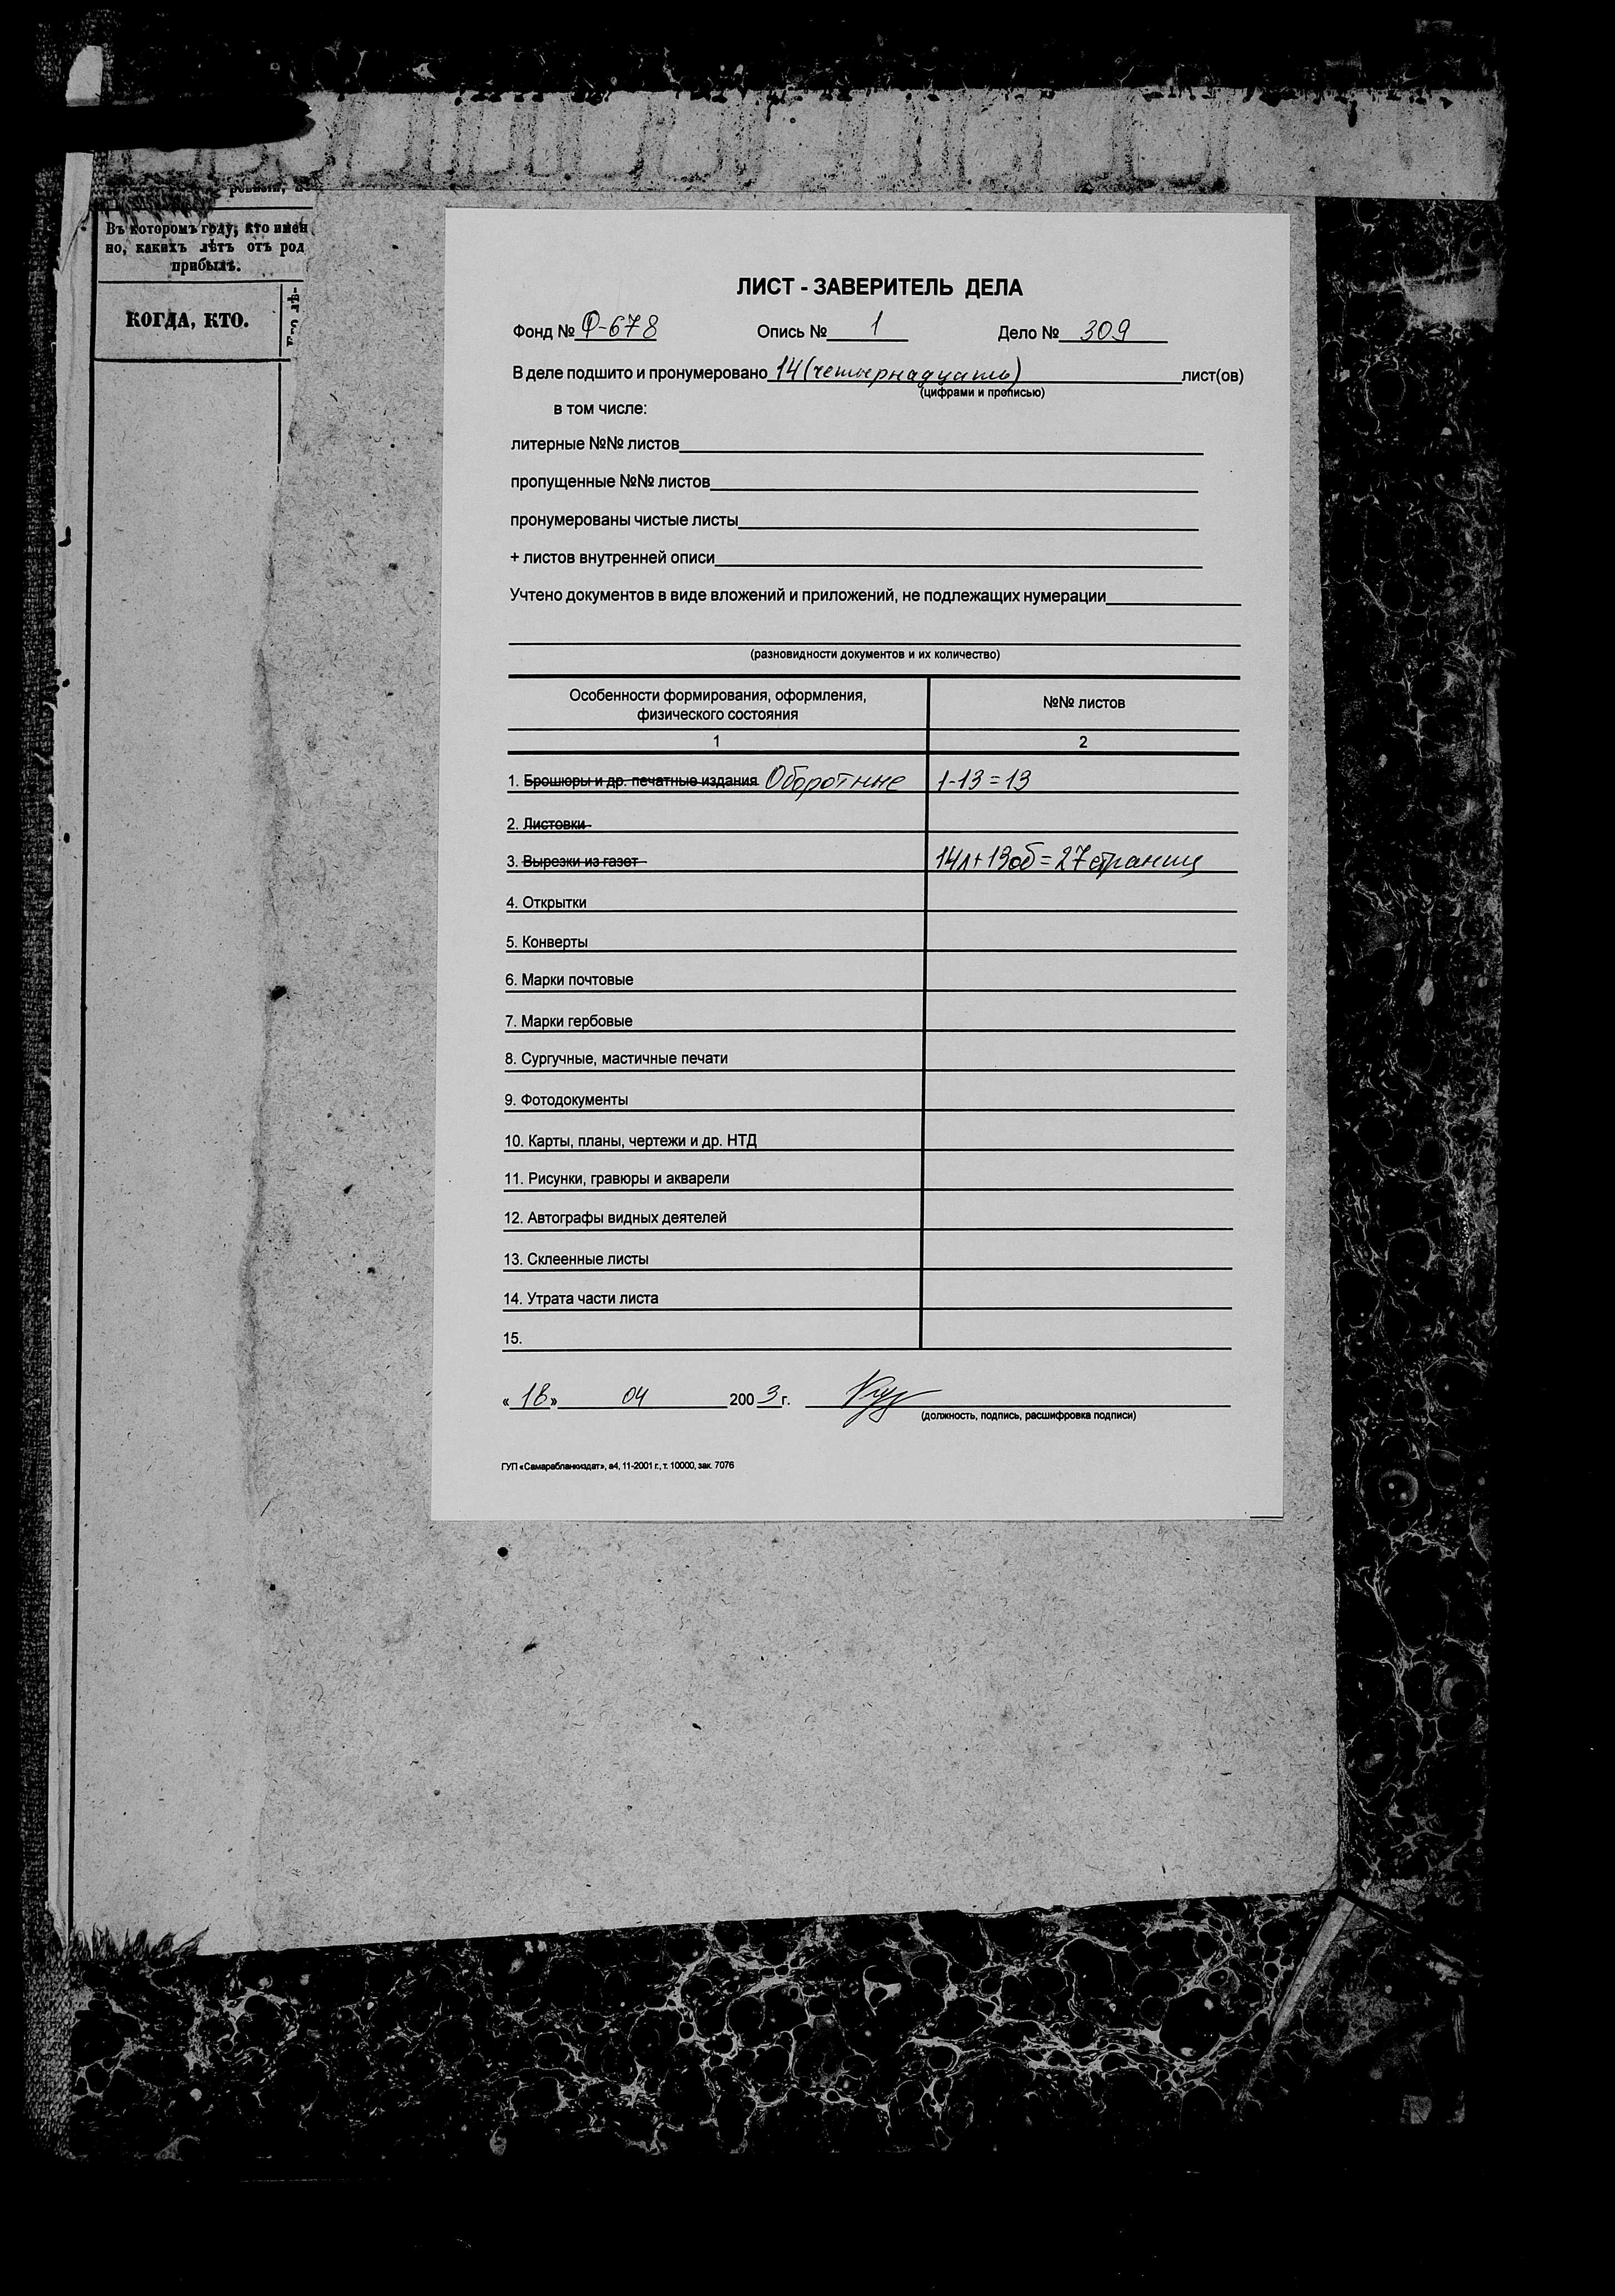 Въ которомъ году, кто имен
но, какихъ лѣтъ отъ род
прибылъ.
КОГДА, КТО.
ЛИСТ - ЗАВЕРИТЕЛЬ ДЕЛА
Фонд № Ф-678 Опись № 1 Дело № 309
В деле подшито и пронумеровано 14 (четырнадцать) лист(ов)
(цифрами и прописью)
в том числе:
литерные №№ листов
пропущенные №№ листов
пронумерованы чистые листы
+ листов внутренней описи
Учтено документов в виде вложений и приложений, не подлежащих нумерации
(разновидности документов и их количество)
Особенности формирования, оформления, №№ листов
физического состояния
1 2
1. Брошюры и др. печатные издания Оборотные 1-13=13
2. Листовки
3. Вырезки из газет 14л+13об=27 страниц
4. Открытки
5. Конверты
6. Марки почтовые
7. Марки гербовые
8. Сургучные, мастичные печати
9. Фотодокументы
10. Карты, планы, чертежи и др. НТД
11. Рисунки, гравюры и акварели
12. Автографы видных деятелей
13. Склеенные листы
14. Утрата части листа
15.
«18» 04 2003 г.
(должность, подпись, расшифровка подписи)
ГУП «Самарабланкиздат», а4, 11-2001 г., т. 10000, зак. 7076